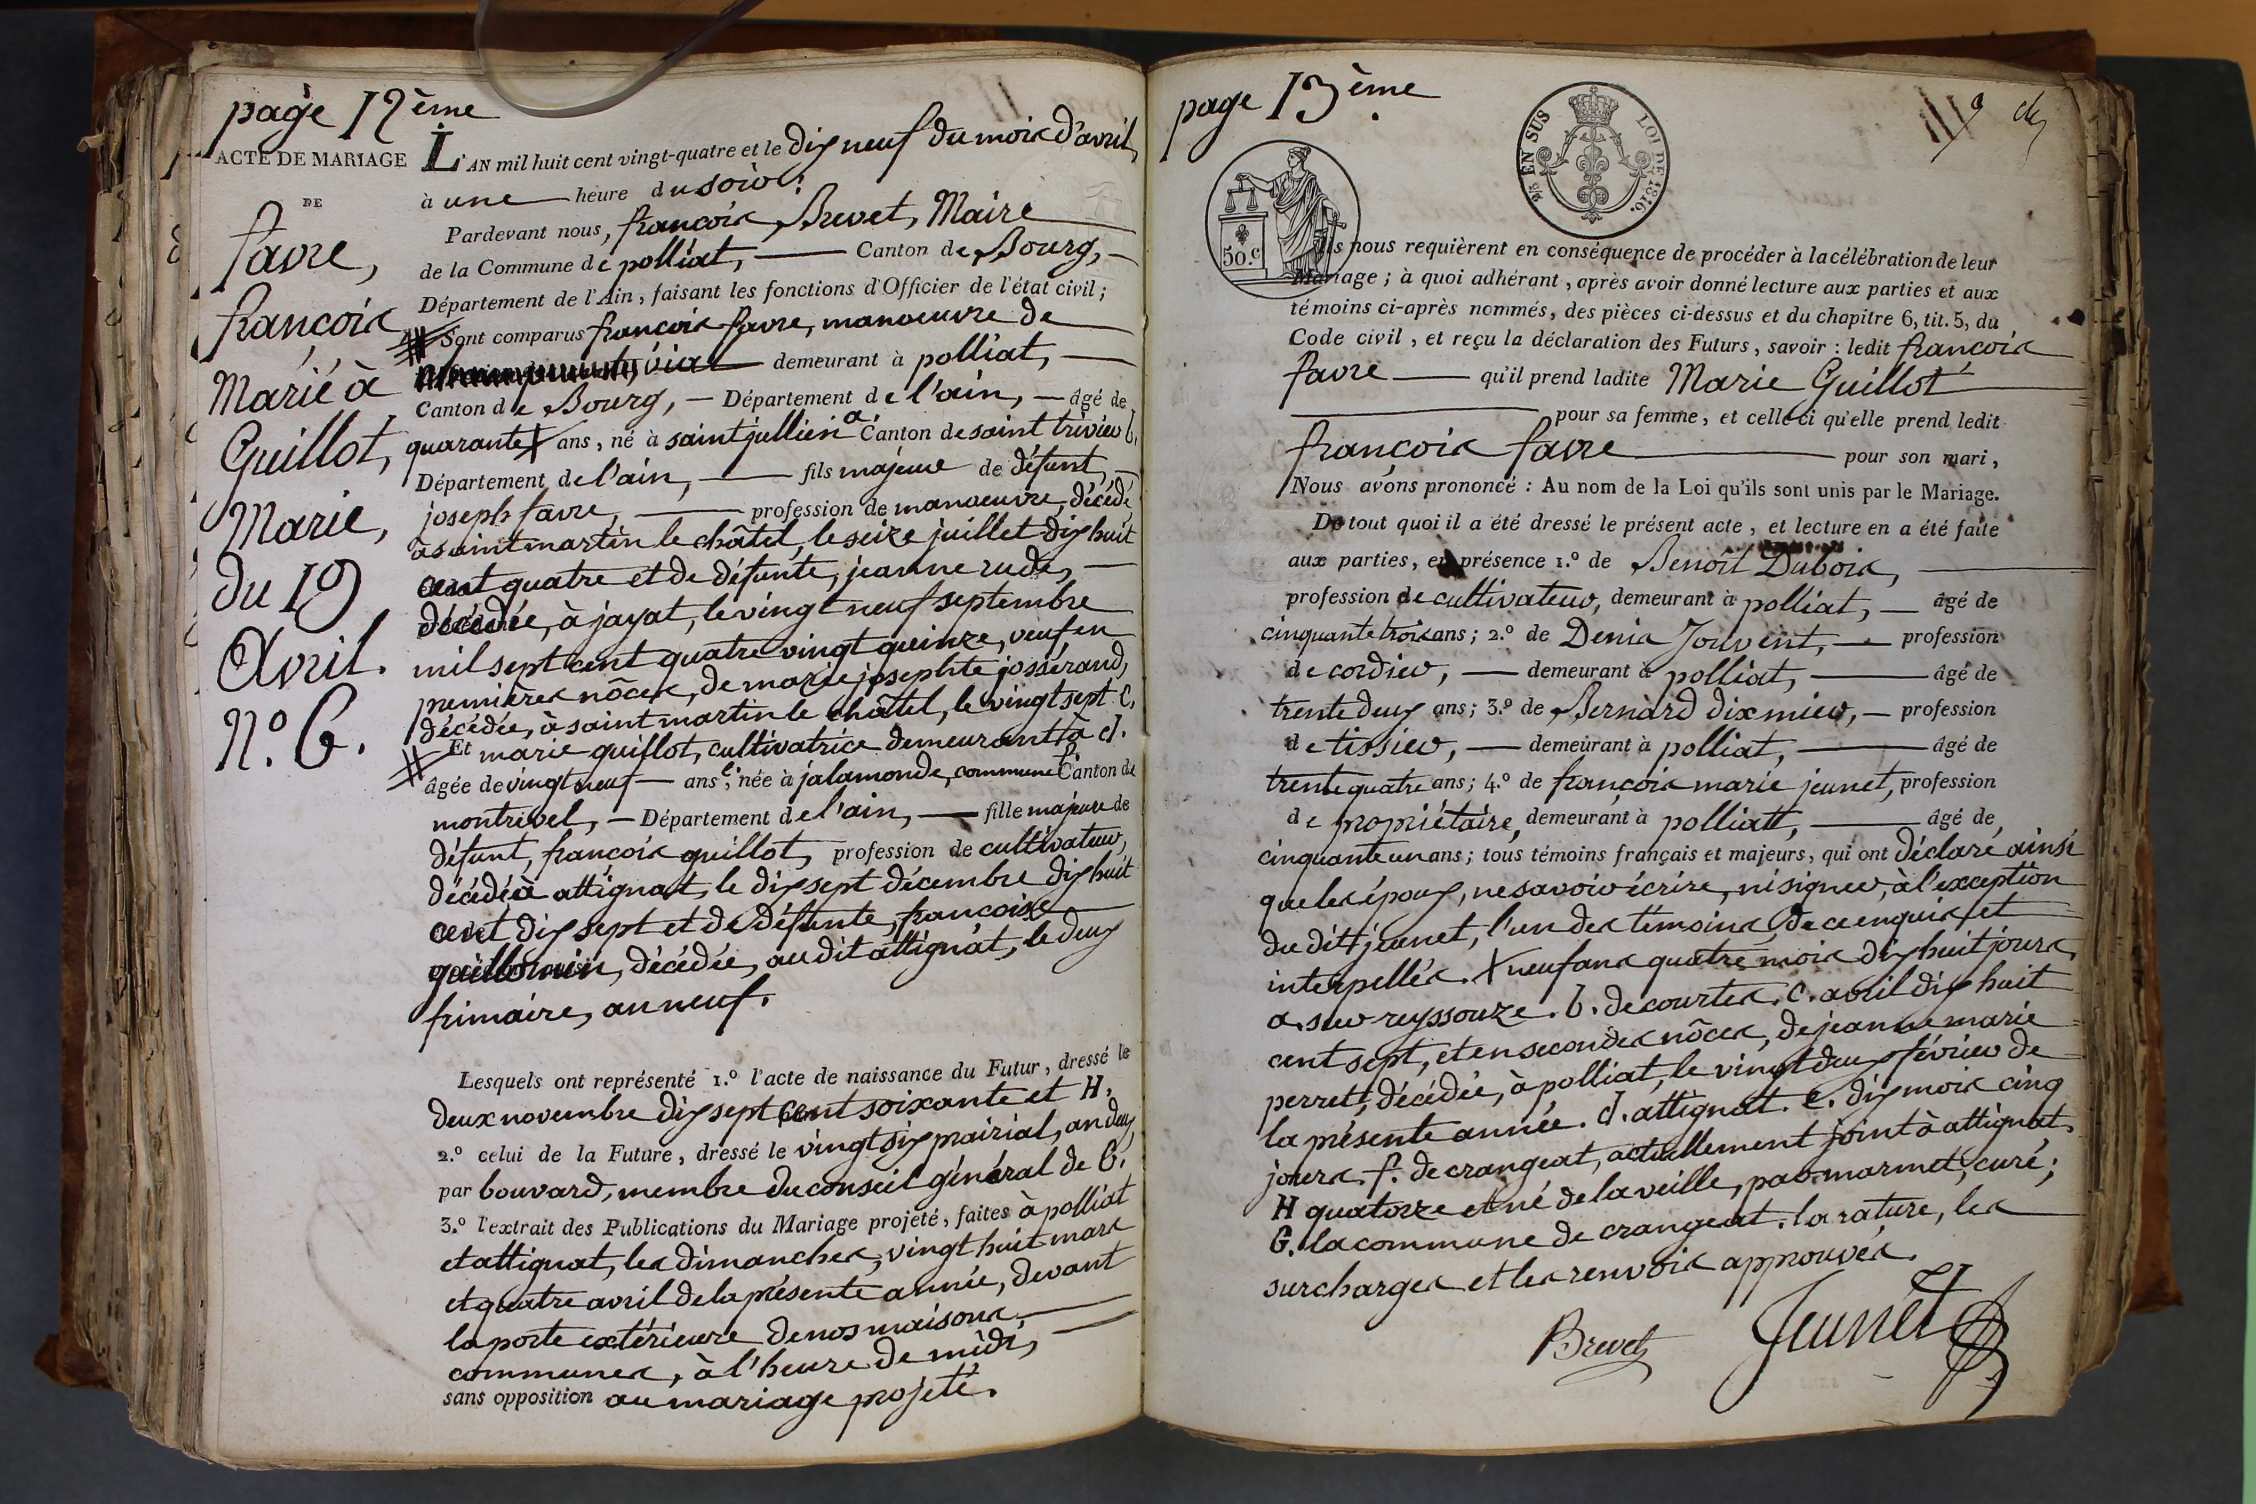 page 12ème
ACTE DE MARIAGE
DE
favre,
françois
Marié à
Guillot,
Marie,
du 19
Avril.
N.º 6.
L'AN mil huit cent vingt-quatre et le dix neuf du mois d'avril,
à une heure du soir:
Pardevant nous, françois Brevet, Maire
de la Commune de polliat, Canton de Bourg,
Département de l'Ain, faisant les fonctions d'Officier de l'état civil;
Sont comparus françois favre, manoeuvre de
vial demeurant à polliat,
Canton de Bourg, Département de l'ain, âgé de
quarante X ans, né à saint jullien a. Canton de saint trivier b.
Département de l'ain, fils majeur de défunt,
joseph favre, profession de manoeuvre, décédé
à saint martin le châtel, le seize juillet dix huit
cent quatre et de défunte, jeanne rude,
décédée, à jayat, le vingt neuf septembre
mil sept cent quatre vingt quinze, veuf en
premières nôces, de marie josephte josserand,
décédée, à saint martin le châtel, le vingt sept c.
Et marie guillot, cultivatrice demeurant à d.
âgée de vingt neuf ans e. née à jalamonde, commune f. Canton de
montrevel, Département de l'ain, fille majeure de
défunt, françois guillot, profession de cultivateur,
décédé à attignat, le dix sept décembre dix huit
cent dix sept et de défunte, françoise
guillomin, décédée, au dit attignat, le deux
frimaire, an neuf.
Lesquels ont représenté 1.º l'acte de naissance du Futur, dressé le
deux novembre dix sept cent soixante et H.
2.º celui de la Future, dressé le vingt six prairial, an deux
par bouvard, membre du conseil général de G.
3.º l'extrait des Publications du Mariage projeté, faites à polliat
et attignat, les dimanches, vingt huit mars
et quatre avril de la présente année, devant
la porte extérieure de nos maisons
communes, à l'heure de midi,
sans opposition au mariage projeté.
page 13ème.
2/5 EN SUS LOI DE 1816.
50.c
Ils nous requièrent en conséquence de procéder à la célébration de leur
Mariage; à quoi adhérant, après avoir donné lecture aux parties et aux
témoins ci-après nommés, des pièces ci-dessus et du chapitre 6, tit. 5, du
Code civil, et reçu la déclaration des Futurs, savoir: ledit françois
favre qu'il prend ladite Marie Guillot
pour sa femme, et celle-ci qu'elle prend ledit
françois favre pour son mari,
Nous avons prononcé: Au nom de la Loi qu'ils sont unis par le Mariage.
De tout quoi il a été dressé le présent acte, et lecture en a été faite
aux parties, en présence 1.º de Benoît Dubois,
profession de cultivateur, demeurant à polliat, âgé de
cinquante trois ans; 2.º de Denis Jouvent, profession
de cordier, demeurant à polliat, âgé de
trente deux ans; 3.º de Bernard dixmier, profession
de tissier, demeurant à polliat, âgé de
trente quatre ans; 4.º de françois marie jeunet, profession
de propriétaire, demeurant à polliatt, âgé de
cinquante un ans; tous témoins français et majeurs, qui ont déclaré ainsi
que les époux, ne savoir écrire, ni signer, à l'exception
du dit jeunet, l'un des témoins, de ce enquis et
interpellés. X neuf ans quatre mois dix huit jours.
a. sur reyssouze. b. de courtes. c. avril dix huit
cent sept, et en secondes nôces, de jeanne marie
perrett, décédée, à polliat, le vingt deux février de
la présente année. d. attignat. e. dix mois cinq
jours. f. de crangeat, actuellement joint à attignat.
H quatorze et né de la veille, par marmet, curé;
G. la commune de crangeat. la rature, les
surcharges et les renvois approuvés.
Brevet Jeunet